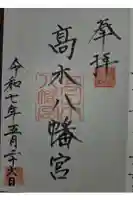 奉拝
高木八幡宮
令和七年五月二十六日